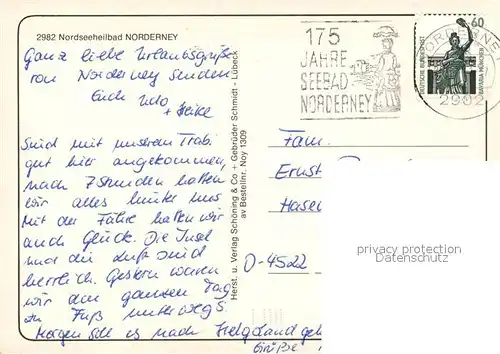 2982 Nordseeheilbad NORDERNEY
Ganz liebe Urlaubsgrüße
von Norderney senden
Euch Udo
+ Heike
Sind mit unserem Trabi
gut hier angekommen,
nach 7 Stunden hatten
wir alles hinter uns
Mit der Fähre hatten wir
auch Glück. Die Insel
und die Luft sind
herrlich. Gestern waren
wir den ganzen Tag
zu Fuß unterwegs.
Morgen soll es nach Helgoland geh
Grüße
Herst. u. Verlag Schöning & Co + Gebrüder Schmidt · Lübeck
av Bestellnr. Noy 1309
175
JAHRE
SEEBAD
NORDERNEY
60
DEUTSCHE BUNDESPOST
BAVARIA MÜNCHEN
NORDERNEY
2982
Fam.
Ernst
Hasen
O-4522
privacy protection
Datenschutz